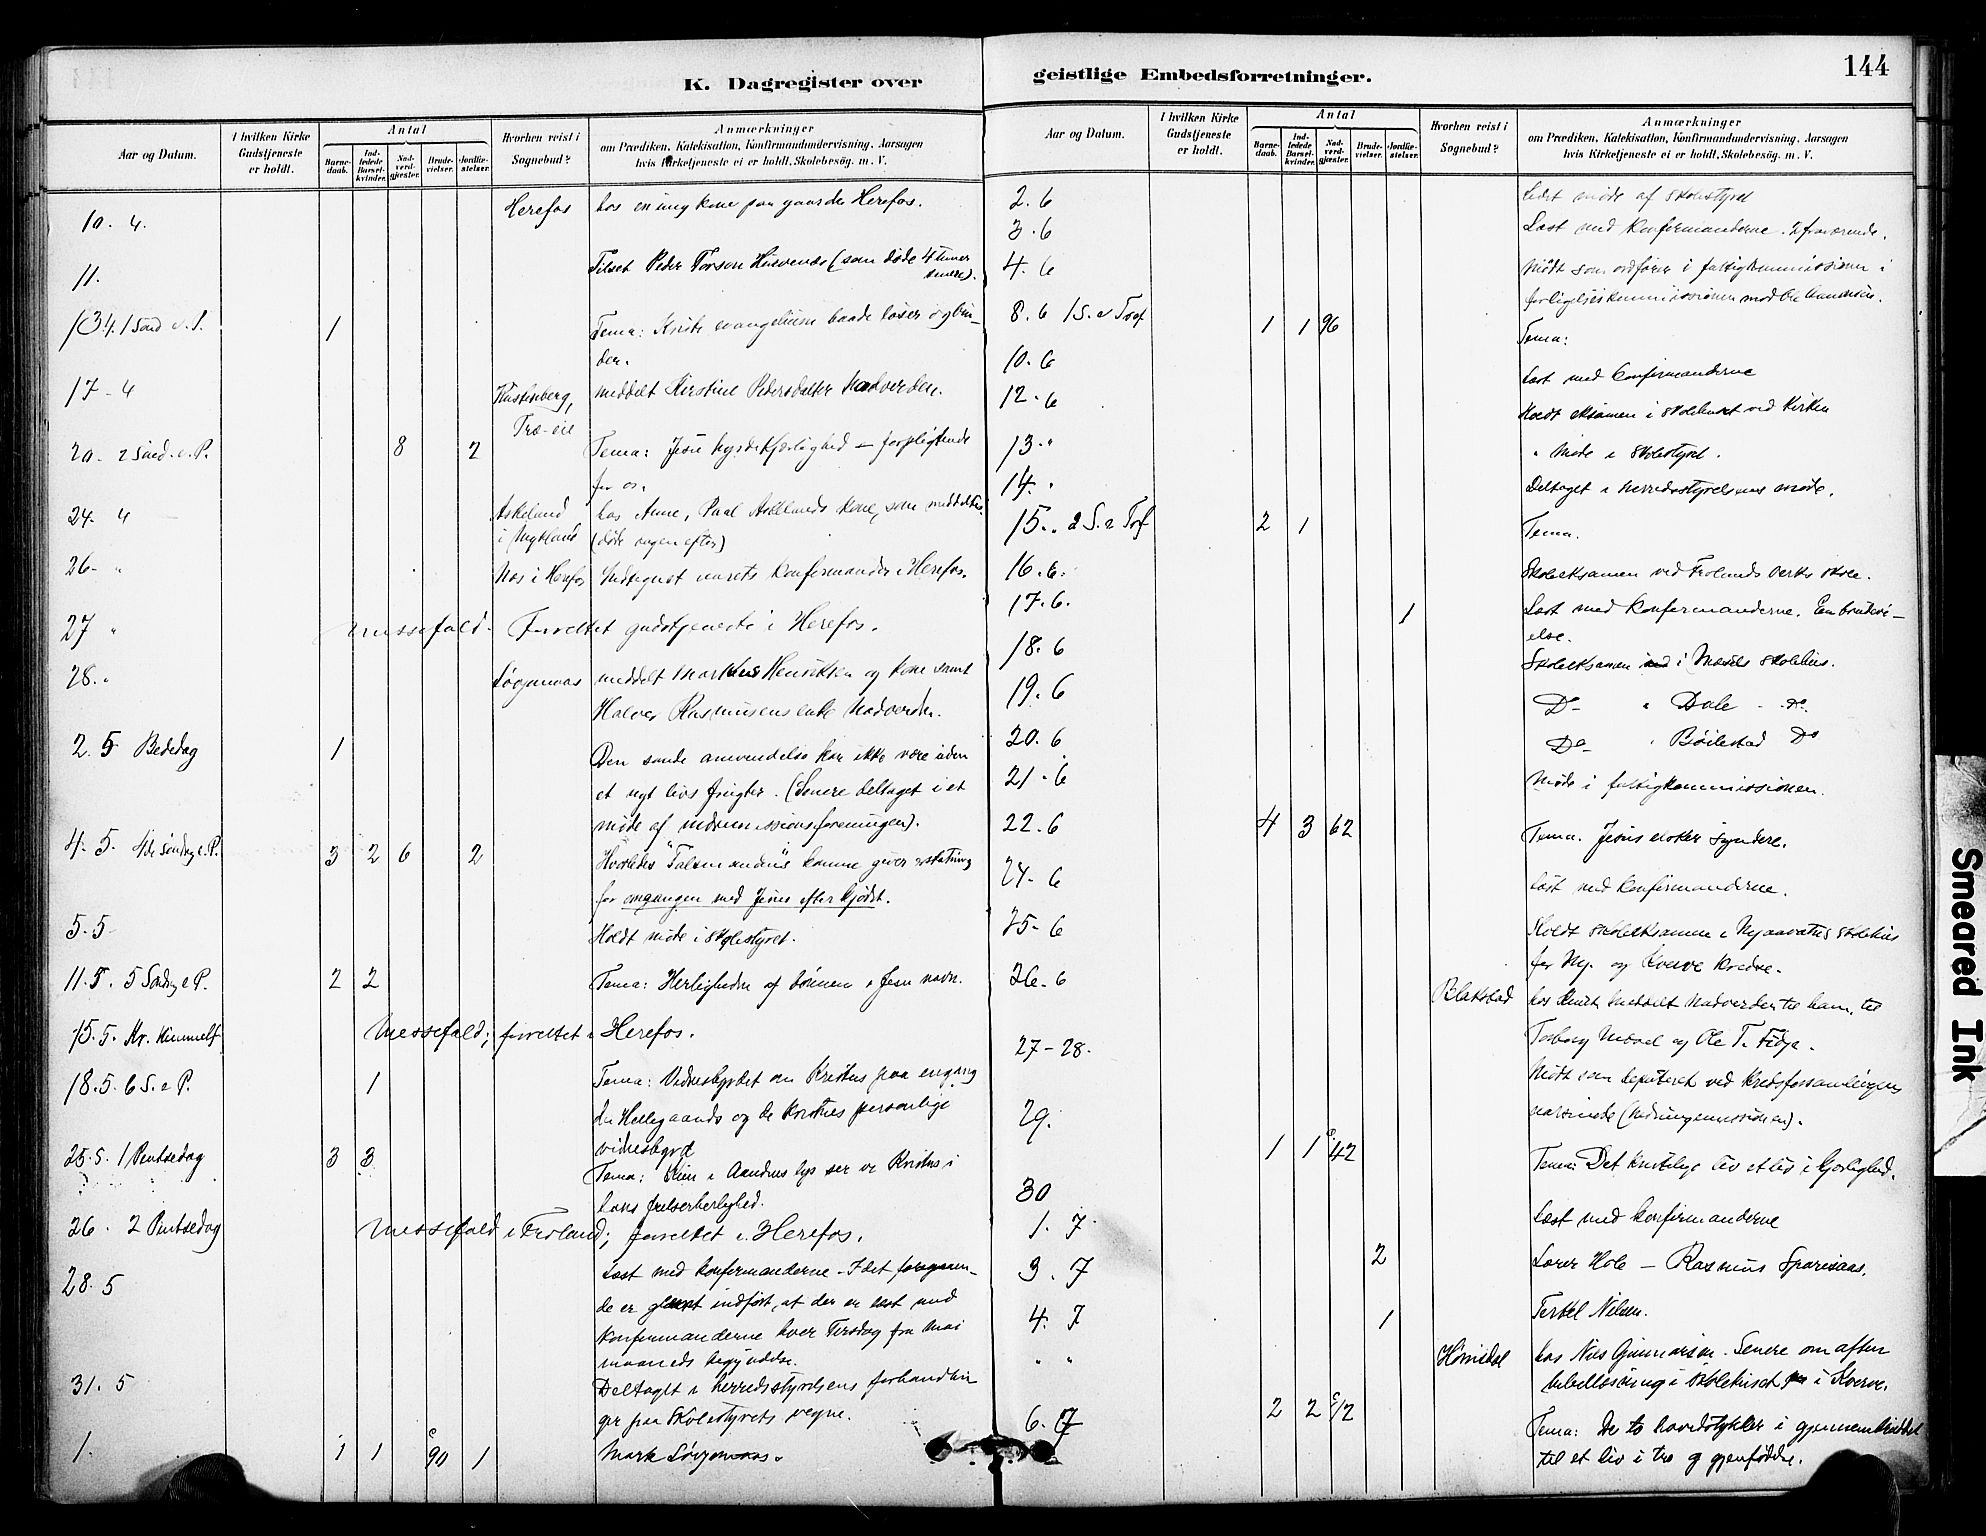 K. Dagregister over
Aar og Datum.
I hvilken Kirke Gudstjeneste er holdt.
Antal
Barne-daab.
Ind-ledede Barsel-kvinder.
Nad-verd-gjæster.
Brude-vielser.
Jordfæ-stelser.
Hvorhen reist i Sognebud?
Anmærkninger
om Prædiken, Katekisation, Konfirmandundervisning, Aarsagen
hvis Kirketjeneste ei er holdt, Skolebesög, m. V.
10. 4. Herefos hos en ung kone paa gaarden Herefos.
11. Tilset Peder (som døde 4 timer
senere).
13 4. 1 Sønd e. P. 1 Tema: evangelium baade løser og bin-
der.
17 - 4 meddelt Kirstine Pedersdatter Nadverden.
Træ-eie
20 - 2 Sønd. e. P. 8 2 Tema: Jesu hyrdekjærlighed - forpligtende
for os.
24. 4 Askeland hos Anne, Paal Askelands kone, som meddeltes
i Mykland (døde ugen efter)
26 - " Næs i Herefos Indtegnet aarets konfirmander i Herefos.
27 " Messefald. Forrettet gudstjeneste i Herefos.
28. " meddelt Markus Henriksen og kone samt
Halvor Rasmussens enke Nadverden.
2. 5 Bededag 1 Den sande anvendelse kan ikke være uden
et nyt livs frugter. (Senere deltaget i et
møde af indremissionsforeningen).
4. 5. 4de søndag e. P. 3 2 6 2 Hvorledes "Talsmandens" komme giver erstatning
for omgangen med Jesus efter kjødet.
5. 5 - Holdt møde i skolestyret.
11. 5. 5 Søndag e P. 2 2 Tema: Herligheden af bønnen i Jesu navn.
15. 5. Kr. Himmelf Messefald; forrettet i Herefos.
18. 5. 6 S. e P. 1 Tema: Vidnesbyrdet om Kristus paa engang
den Helligaands og de kristnes personlige
vidnesbyrd
25. 5. 1 Pintsedag 3 3 Tema: Kun i Aandens lys ser vi Kristus i
hans frelserherlighed.
26. 2 Pintsedag Messefald i Froland; forrettet i Herefos.
28. 5 Læst med konfirmanderne - I det foregaaen-
de er glemt indført, at der er læst med
konfirmanderne hver Tirsdag fra Mai
maaneds begyndelse.
31. 5 Deltaget i herredsstyrelsens forhandlin
ger paa Skolestyrets vegne.
1. 1 1 90 1 Mark
geistlige Embedsforretninger.
144
Aar og Datum.
I hvilken Kirke Gudstjeneste er holdt.
Antal
Barne-daab.
Ind-ledede Barsel-kvinder.
Nad-verd-gjæster.
Brude-vielser.
Jordfæ-stelser.
Hvorhen reist i Sognebud?
Anmærkninger
om Prædiken, Katekisation, Konfirmandundervisning, Aarsagen
hvis Kirketjeneste ei er holdt, Skolebesög, m. V.
2. 6 Ledet møde af skolestyret
3. 6 Læst med konfirmanderne. 2 fraværende.
4. 6 Mødt som ordfører i fattigkommissionen i
forligelseskommissionen mod
8. 6 1 S. e Tref 1 1 96 Tema:
10. 6 Læst med konfirmanderne
12. 6 Holdt eksamen i skolehuset ved Kirken
13. " " Møde i skolestyret.
14. " Deltaget i herredsstyrelsens møde.
15. " 2 S. e Tref 2 1 Tema.
16. 6. Skoleeksamen ved Frolands verks skole.
17. 6. 1 Læst med konfirmanderne. En brudevi-
else.
18. 6 Skoleeksamen i Mæsels skolehus.
19. 6 Do " Dale - Do
20. 6 Do " Bøilestad Do
21 - 6 Møde i fattigkommissionen.
22. 6 4 3 62 Tema. Jesus elsker syndere.
24 - 6 Læst med konfirmanderne.
25 - 6 Holdt skoleeksamen i skolehus
for Ny. og kredse.
26. 6 hos meddelt Nadverden til ham, til
og Ole T.
27 - 28. Mødt som deputeret ved Kredsforsamlingen
(Indremissionen).
29. 1 1 42 Tema: Det kristelige liv et liv i kjærlighed.
30 Læst med konfirmanderne
1. 7 2 Lærer Hole - Rasmus
3. 7 Terkel Nilsen.
4. 7 1
" " hos Nils Gunnarsen. Senere om aften
bibellæsning i skolehuset i
6. 7 2 2 Tema: De to hovedstykker i gjennembruddet
til et liv i tro og gjenfødelse.
Smeared Ink